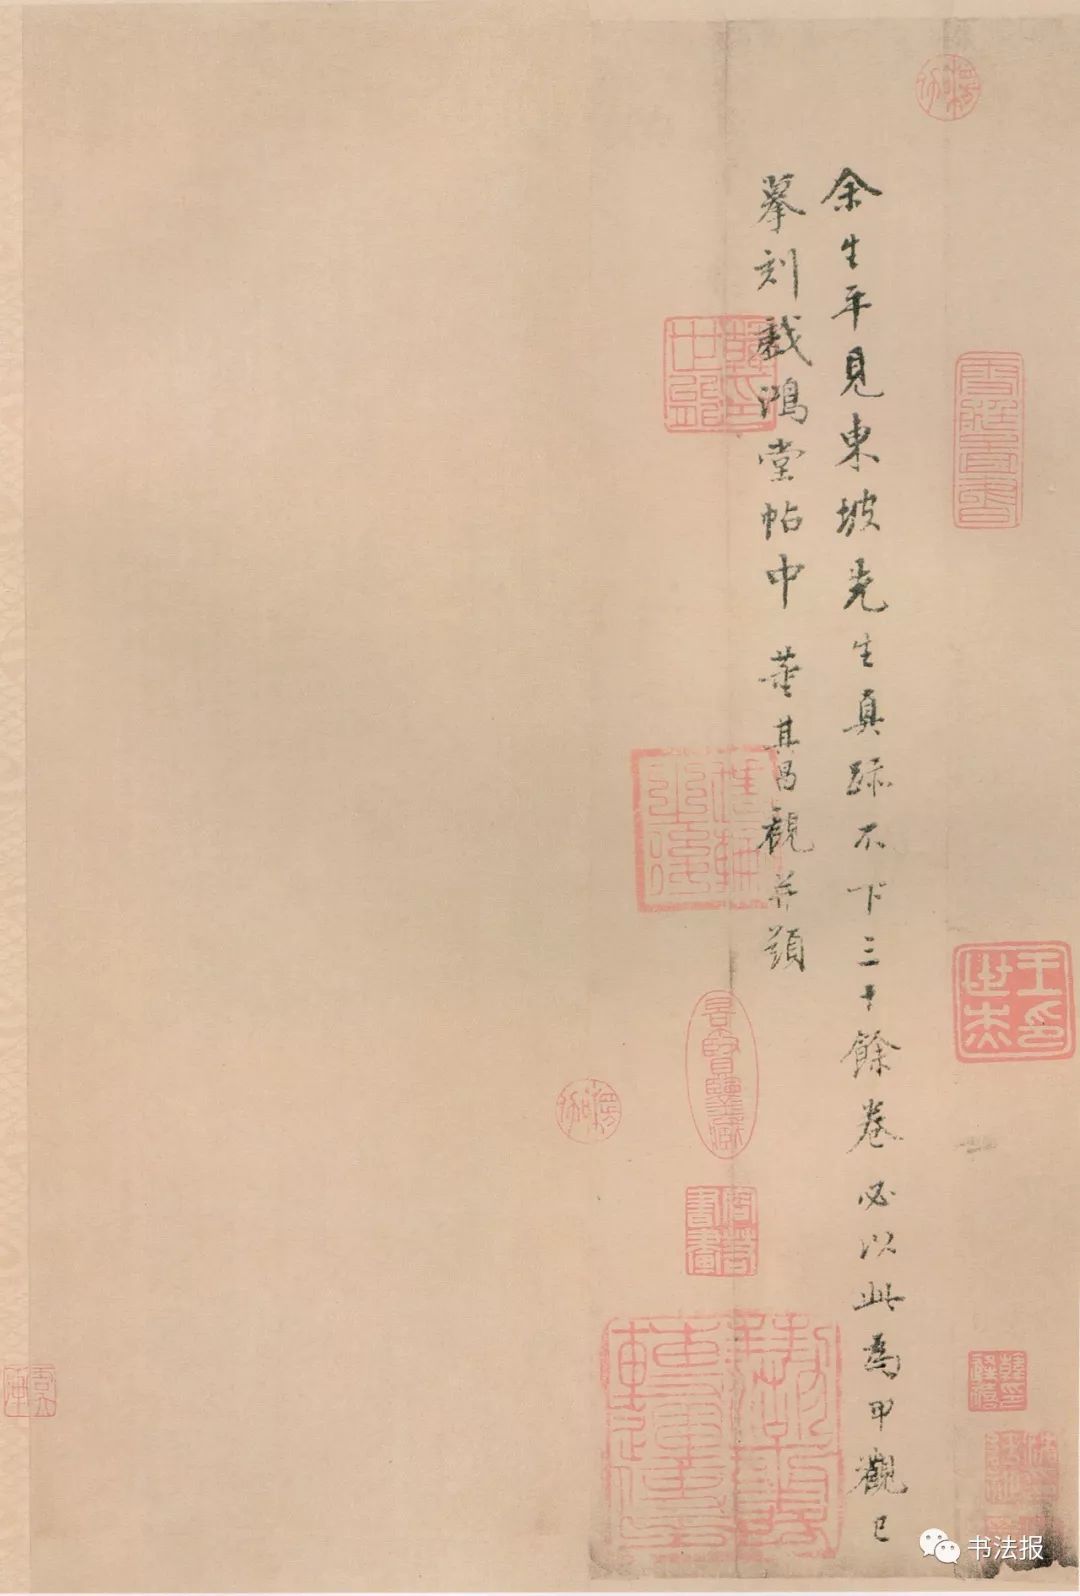 余生平見東坡先生真跡不下三十餘卷必以此為甲觀已
摹刻戲鴻堂帖中 董其昌觀并題
王印世杰
书法报